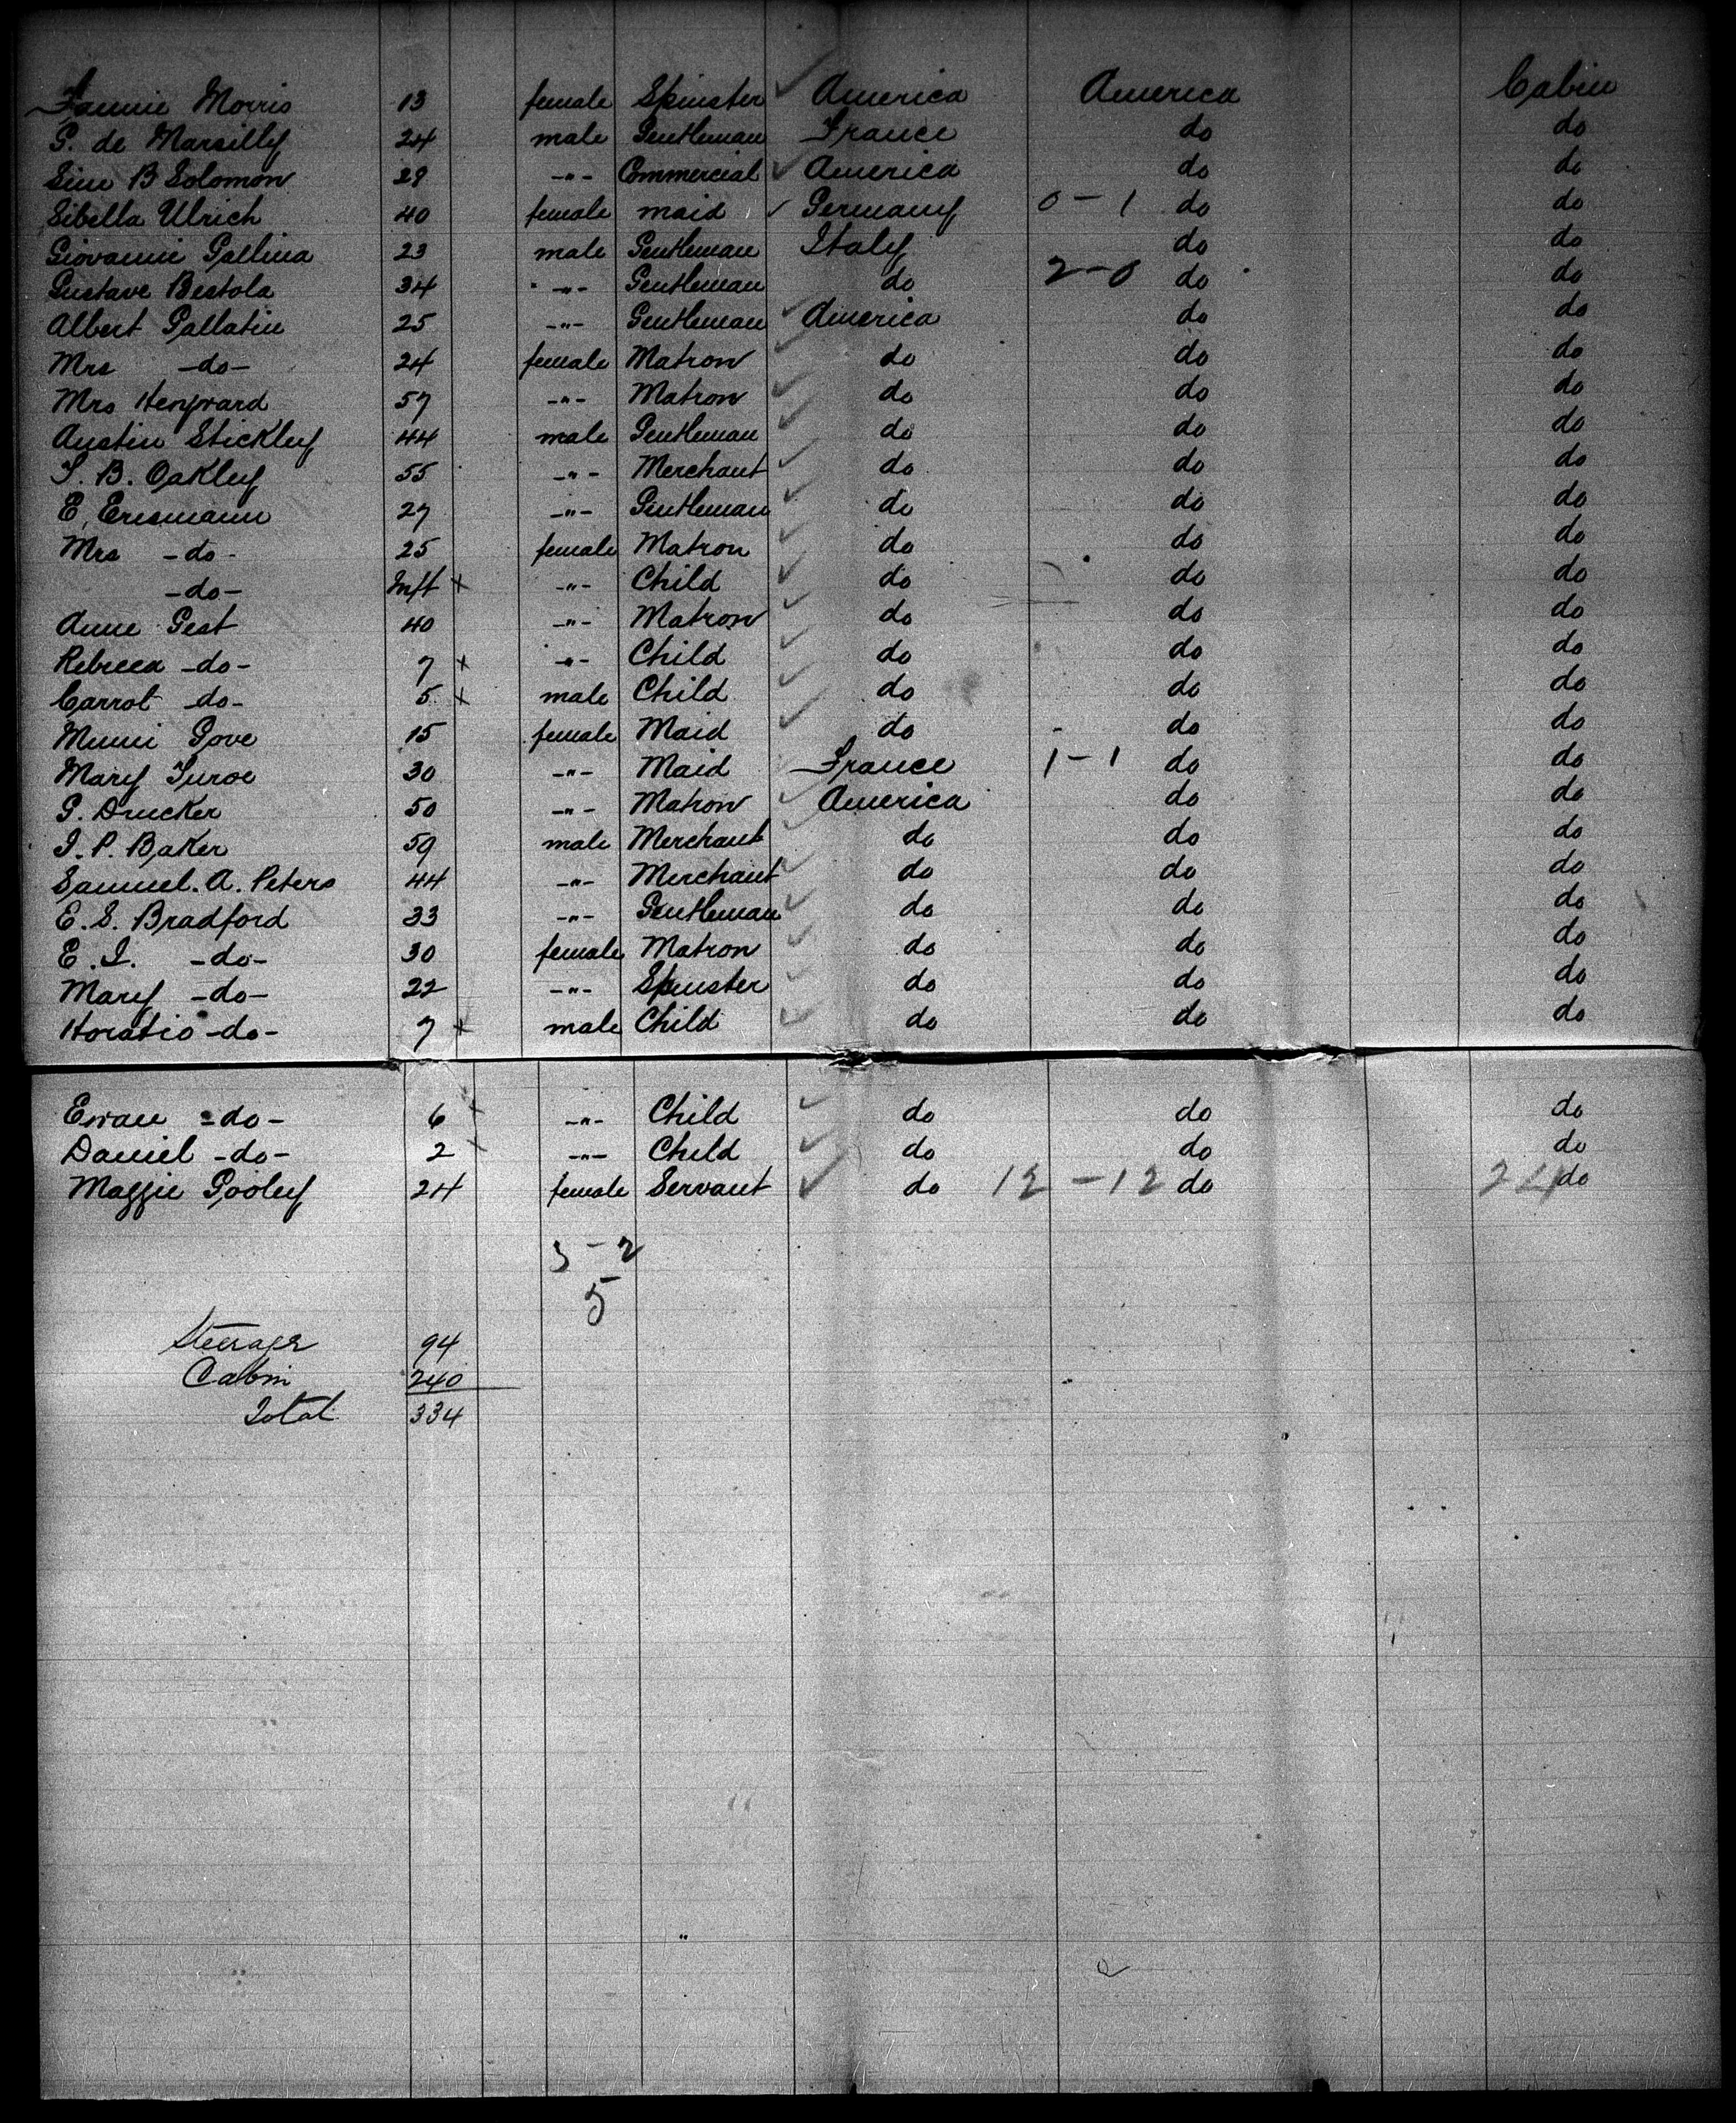 Fannie Morris 13 female Spinster America America Cabin
G. de Marsilly 24 male Gentleman France do do
Sim B Solomon 29 -"- Commercial America do do
Sibella Ulrich 40 female maid Germany 0-1 do do
Giovanni Gallina 23 male Gentleman Italy do do
Gustave Bestola 34 -"- Gentleman do 2-0 do do
Albert Gallatin 25 -"- Gentleman America do do
Mrs -do- 24 female Matron do do do
Mrs Heyward 57 -"- Matron do do do
Austin Stickley 44 male Gentleman do do do
B. Oakley 55 -"- Merchant do do do
E. Erismann 27 -"- Gentleman do do do
Mrs -do- 25 female Matron do do do
-do- Inft x -"- Child do do do
Anne Gest 40 -"- Matron do do do
Rebecca -do- 7 x -"- Child do do do
-do- 5 x male Child do do do
Gove 15 female Maid do do do
Mary 30 -"- Maid France 1-1 do do
G. Drucker 50 -"- Matron America do do
I. P. Baker 59 male Merchant do do do
Samuel. A. Peters 44 -"- Merchant do do do
E. S. Bradford 33 -"- Gentleman do do do
E. I. -do- 30 female Matron do do do
Mary -do- 22 -"- Spinster do do do
Horatio -do- 7 x male Child do do do
-do- 6 x -"- Child do do do
Daniel -do- 2 x -"- Child do do do
Maggie Pooley 24 female Servant do 12-12 do 24 do
3-2
5
Steerage 94
Cabin 240
Total 334